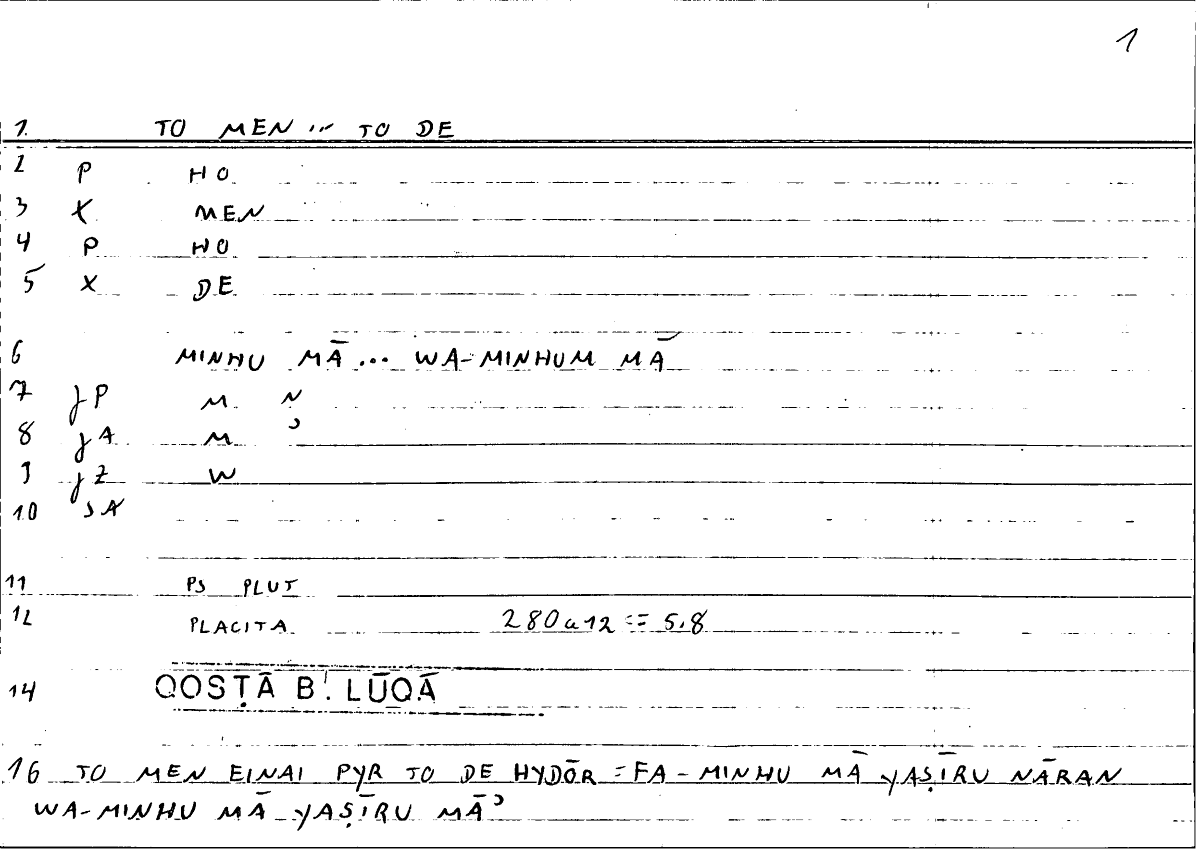 1
1 TO MEN ... TO DE
2 P HO
3 X MEN
4 P HO
5 X DE
6 MINHU MĀ ... WA-MINHUM MĀ
7 JP M N
8 JA M ʾ
9 JZ W
10 SA
11 PS PLUT
12 PLACITA 280a12 = 5.8
14 QOSṬĀ B. LŪQĀ
16 TO MEN EINAI PYR TO DE HYDŌR = FA-MINHU MĀ YAṢĪRU NĀRAN
WA-MINHU MĀ YAṢĪRU MĀʾ